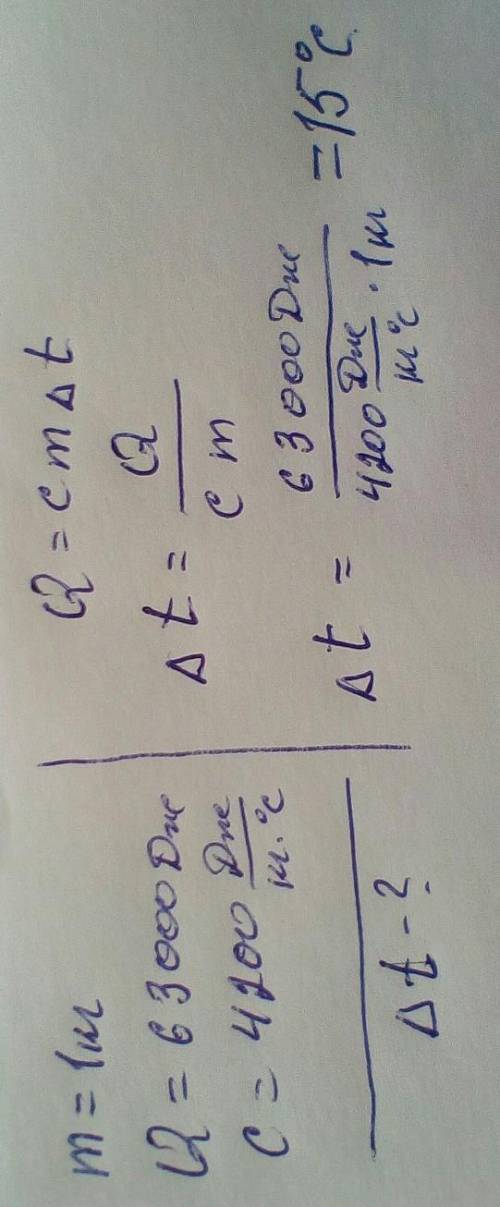 m = 1кг
Q = 63000 Дж
c = 4200 Дж/кг·°C
Δt - ?
Q = c m Δt
Δt = Q/cm
Δt = 63000 Дж/4200 Дж/кг°C · 1кг = 15°C